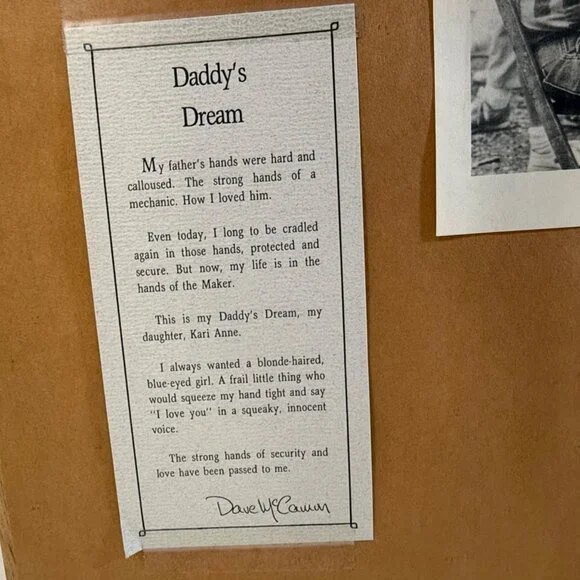 Daddy's
Dream
My father's hands were hard and
calloused. The strong hands of a
mechanic. How I loved him.
Even today, I long to be cradled
again in those hands, protected and
secure. But now, my life is in the
hands of the Maker.
This is my Daddy's Dream, my
daughter, Kari Anne.
I always wanted a blonde-haired,
blue-eyed girl. A frail little thing who
would squeeze my hand tight and say
"I love you" in a squeaky, innocent
voice.
The strong hands of security and
love have been passed to me.
Dave